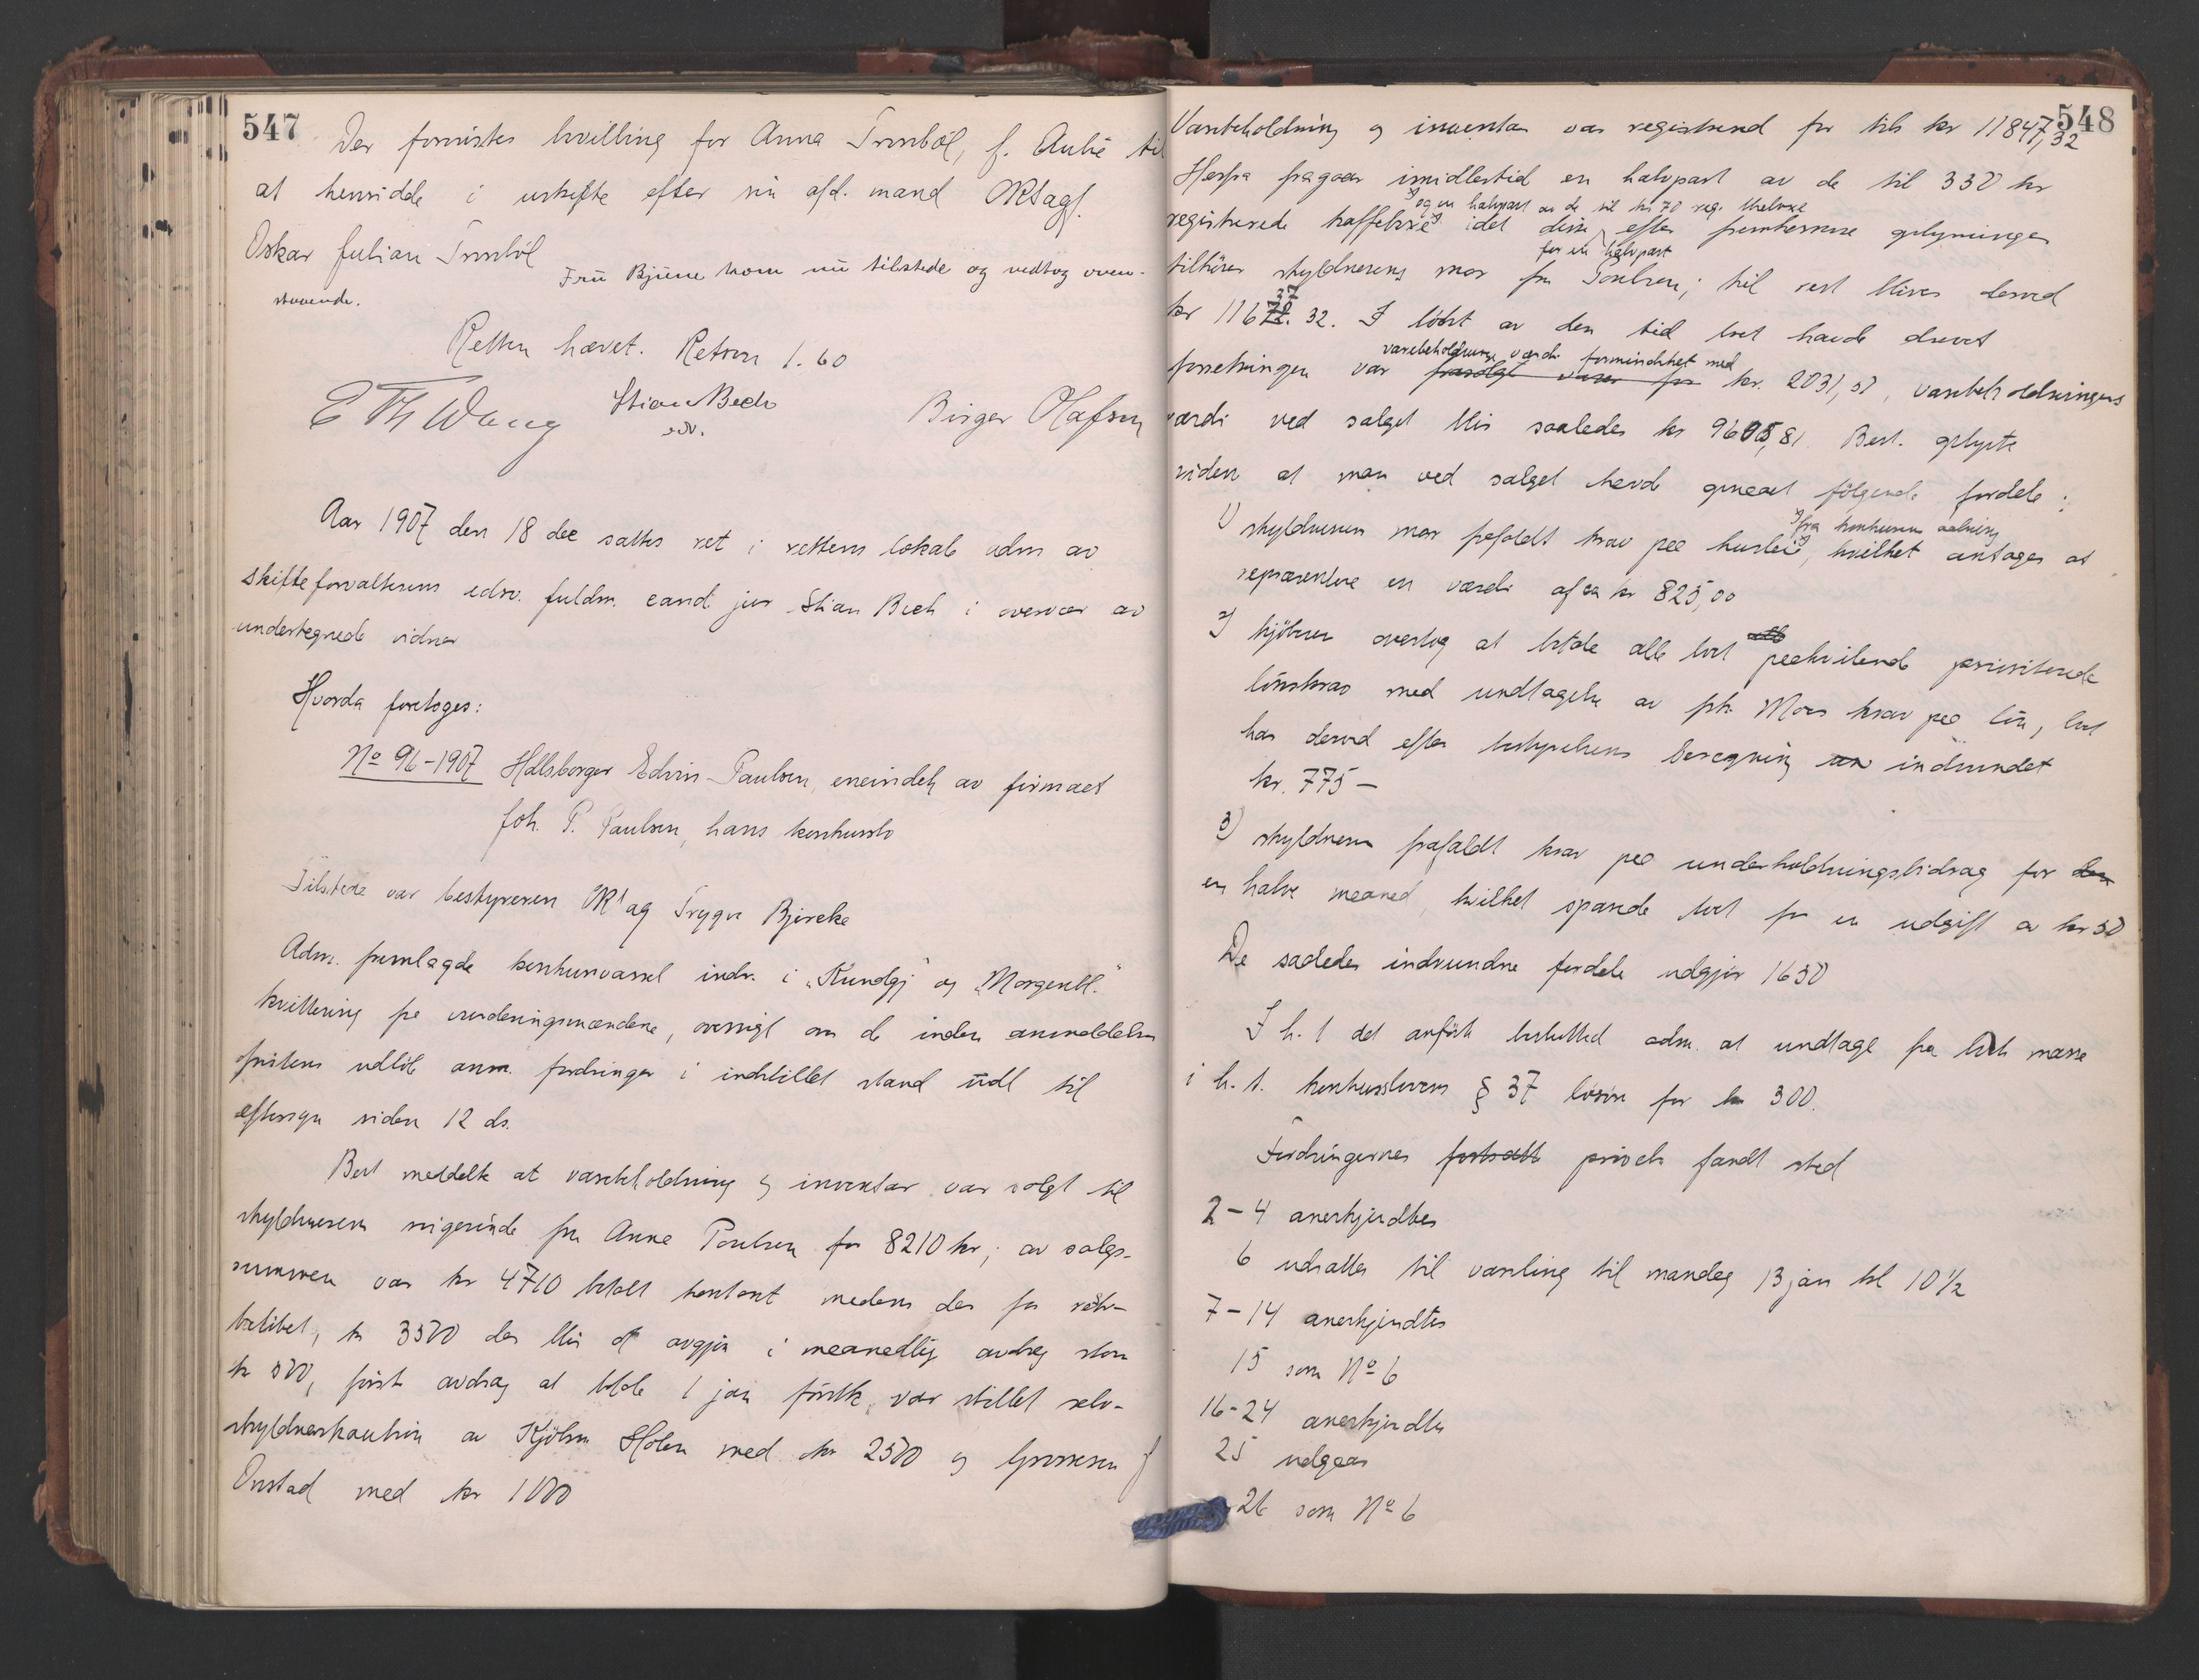 547
Der forvistes bevilling for Anna Trønböl, f. Aubé til
at hensidde i uskifte efter sin afd. mand ORsagf.
Oskar Julian Trønböl Fru Bjune kom nu tilstede og vedtog oven-
staaende.
Retten hævet. Retten 1.60
E Th Wang Stian Bech Birger Olafsen
edv.
Aar 1907 den 18 dec sattes ret i rettens lokale adm av
skifteforvalterens edsv. fuldm. cand. jur Stian Bech i overvær av
undertegnede vidner
Hvorda foretoges:
No 96-1907 Hdlsborger Edvin Paulsen, eneindeh av firmaet
Joh. P. Paulsen, hans konkursbo
Tilstede var bestyreren ORsag Trygve Bjercke
Adm. fremlagde konkursvarsel indr. i "Kundgj" og "Morgenbl."
kvittering fra vurderingsmændene, oversigt om de inden anmeldelses
fristens udlöb anm. fordringer i indstillet stand udl til
eftersyn siden 12 ds.
Best meddelte at varebeholdning og inventar var solgt til
skyldnerens svigerinde fru Anna Poulsen for 8210 kr; av salgs-
summen var kr 4710 betalt kontant medens der for rest-
belöbet, kr 3500 der blir at avgjøre i maanedlig avdrag stor
kr 500, första avdrag at betale 1 jan förstk. var stillet selv-
skyldnerkaution av Kjöbm Holen med kr 2500 og Grosserer J
Onstad med kr 1000
548
Varebeholdning og inventar var registrered for tils kr 11847,32
Herfra fragaar imidlertid en halvpart av de til 330 kr
og en halvpart av de til kr 70 reg. thebokse
registrerede kaffebokse idet disse efter fremkomne oplysninger
for en halvpart
tilhörer skyldnerens mor fru Poulsen; til rest bliver derved
37
kr 116 32. I löbet av den tid boet havde drevet
varebeholdningens værdi formindsket med
forretningen var frasolgt varer for kr. 2031,51, varebeholdningens
værdi ved salget blir saaledes kr 9605,81. Best. oplyste
viden at man ved salget havde opnaaet fölgende fordele:
fra konkursens aabning
1) skyldnerens mor frafaldt krav paa husleie, hvilket antages at
repræsentere en værdi af ca kr 825,00
2) kjöberen overtog at betale alle boet paahvilende prioriterede
lönskrav med undtagelse av frk. Moes krav paa lön, boet
har derved efter bestyrelsens beregning indvundet
kr. 775 -
3) skyldneren frafaldt krav paa underholdningsbidrag for den
en halve maaned, hvilket sparede boet for en udgift av kr 50
De saaledes indvundne fordele udgjör 1650
I h. t det anförte besluttet adm. at undtage fra boets masse
i h. t. konkurslovens § 37 lösöre for kr 300.
Fordringernes fortsatte prövelse fandt sted
2-4 anerkjendtes
6 udsattes til varsling til mandag 13 jan kl 10 1/2
7-14 anerkjendtes
15 som No 6
16-24 anerkjendtes
25 udgaar
26 som No 6